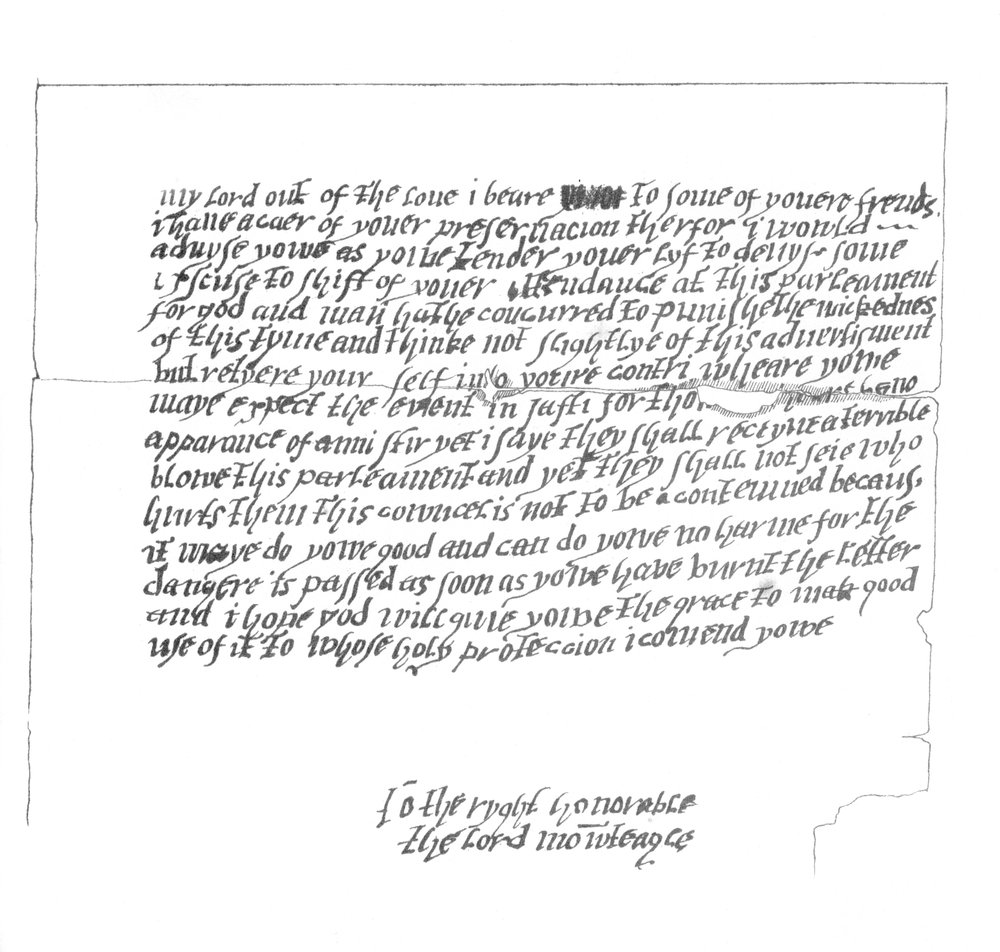 my lord out of the loue i beare to some of youere frends
i haue a caer of youer preseruacion therfor i would
aduyse yowe as yowe tender youer lyf to deuys some
excuse to shift of youer attendance at this parleament
for god and man hathe concurred to punishe the wickednes
of this tyme and thinke not slightlye of this aduertisment
but retyere your self into youre contri wheare yowe
maye expect the event in safti for thoughe theare be no
apparance of anni stir yet i saye they shall receyue a terrible
blowe this parleament and yet they shall not seie who
hurts them this cowncel is not to be a contemned becaus
it maye do yowe good and can do yowe no harme for the
dangere is passed as soon as yowe have burnt the letter
and i hope god will giue yowe the grace to mak good
use of it to whose holy proteccion i comend yowe
To the ryght honorable
the lord mowteagle